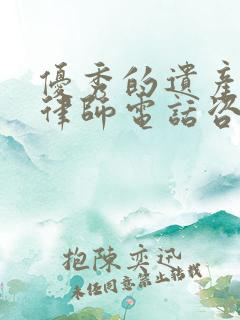 優秀的遺產
律師電話咨
抱陳奕迅
未任同意禁止轉載